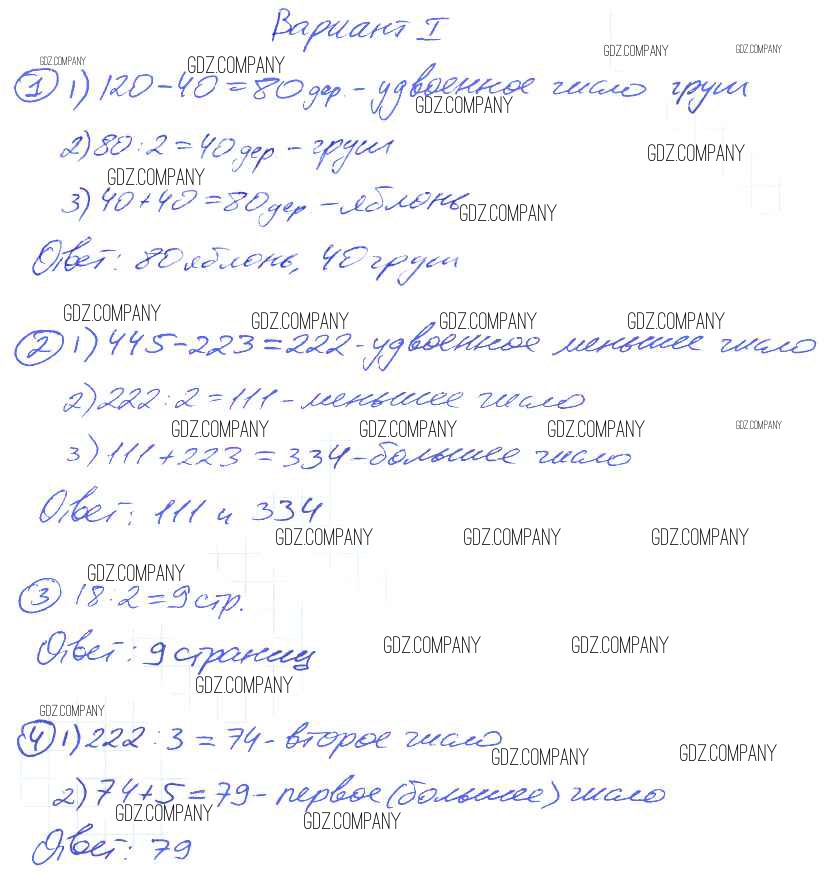 Вариант I
GDZ.COMPANY GDZ.COMPANY GDZ.COMPANY GDZ.COMPANY
① 1) 120 - 40 = 80 дер. - удвоенное число груш
GDZ.COMPANY
2) 80 : 2 = 40 дер - груш
GDZ.COMPANY
GDZ.COMPANY
3) 40 + 40 = 80 дер - яблонь
GDZ.COMPANY
Ответ: 80 яблонь, 40 груш
GDZ.COMPANY GDZ.COMPANY GDZ.COMPANY GDZ.COMPANY
② 1) 445 - 223 = 222 - удвоенное меньшее число
2) 222 : 2 = 111 - меньшее число
GDZ.COMPANY GDZ.COMPANY GDZ.COMPANY GDZ.COMPANY
3) 111 + 223 = 334 - большее число
Ответ: 111 и 334
GDZ.COMPANY GDZ.COMPANY GDZ.COMPANY
GDZ.COMPANY
③ 18 : 2 = 9 стр.
Ответ: 9 страниц
GDZ.COMPANY GDZ.COMPANY
GDZ.COMPANY
GDZ.COMPANY
④ 1) 222 : 3 = 74 - второе число
GDZ.COMPANY GDZ.COMPANY
2) 74 + 5 = 79 - первое (большее) число
GDZ.COMPANY GDZ.COMPANY
Ответ: 79